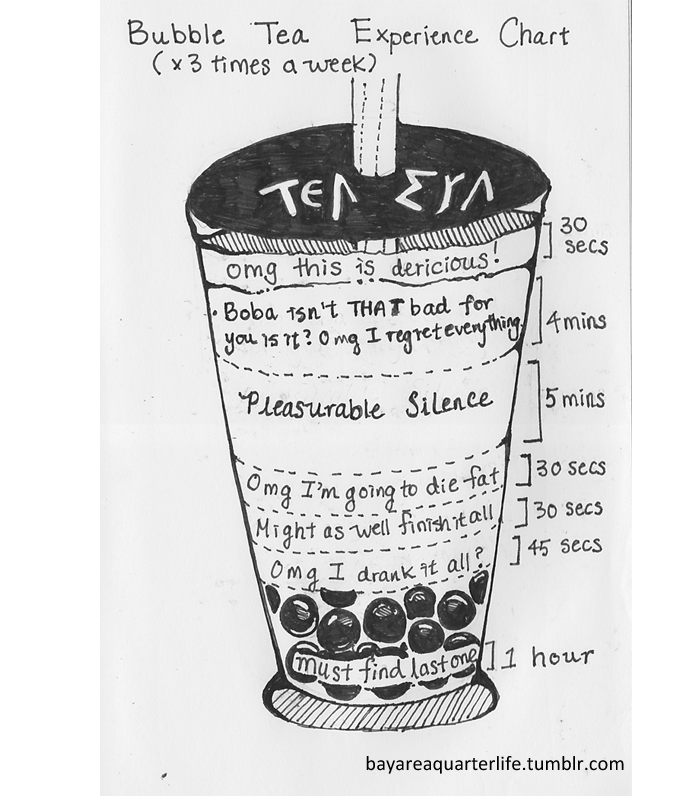 Bubble Tea Experience Chart
(x3 times a week)
TEA ERA
30
secs
omg this is dericious!
Boba isn't THAT bad for
you is it? Omg I regret everything.
4 mins
Pleasurable Silence
5 mins
Omg I'm going to die fat
30 secs
Might as well finish it all
30 secs
Omg I drank it all?
45 secs
must find last one
1 hour
bayareaquarterlife.tumblr.com